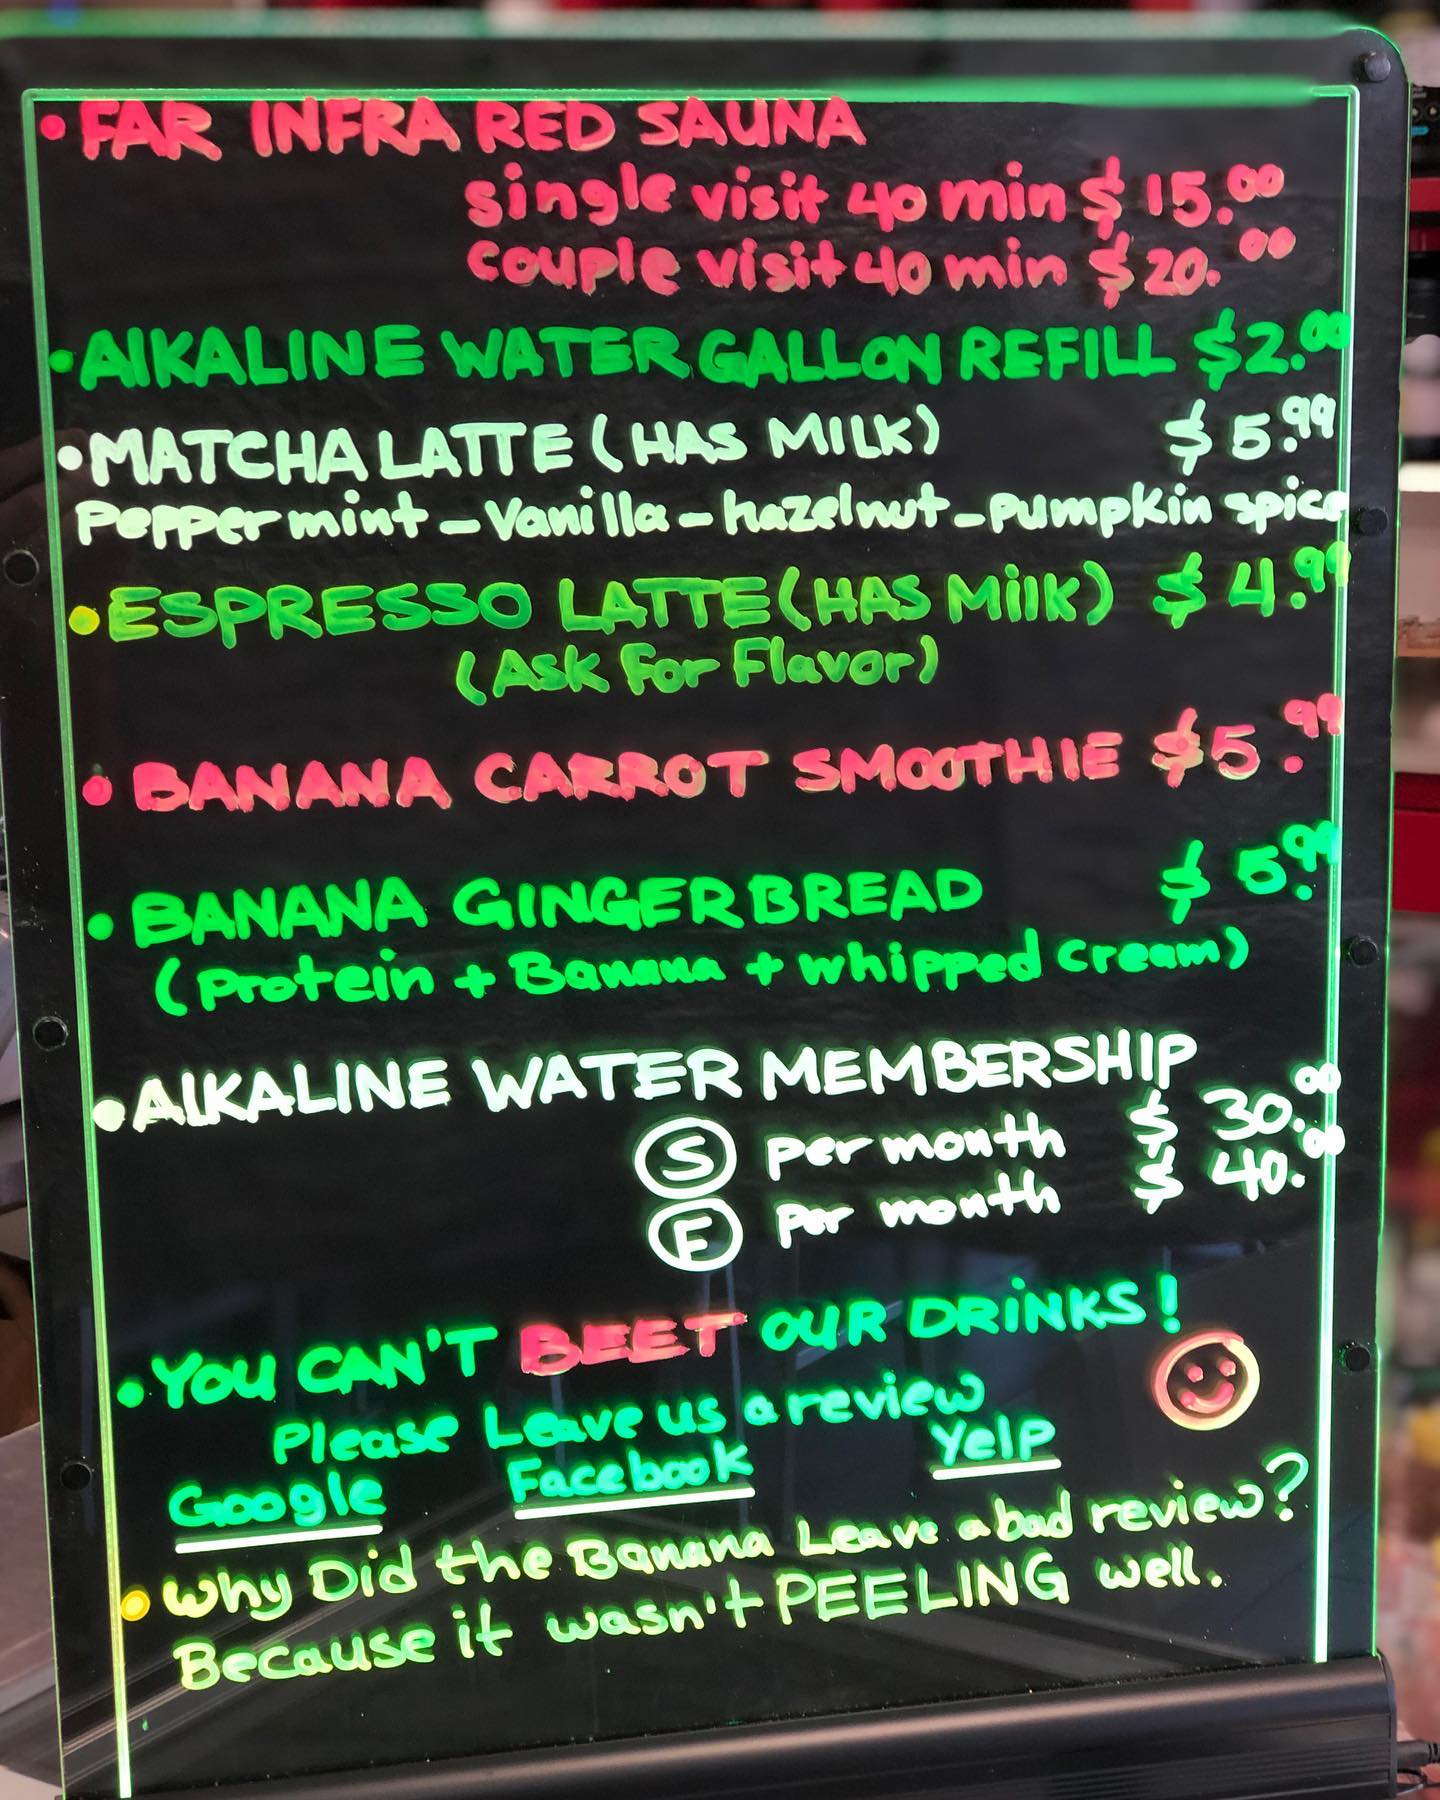 • FAR INFRA RED SAUNA
single visit 40 min $15.00
couple visit 40 min $20.00
• AlKALINE WATER GALLON REFILL $2.00
• MATCHA LATTE (HAS MILK) $5.99
Peppermint - Vanilla - hazelnut - pumpkin spice
• ESPRESSO LATTE (HAS Milk) $4.99
(Ask For Flavor)
• BANANA CARROT SMOOTHIE $5.99
• BANANA GINGERBREAD $5.99
(Protein + Banana + whipped cream)
• AlKALINE WATER MEMBERSHIP
S per month $30.00
F per month $40.00
• YOU CAN'T BEET OUR DRiNKS!
Please Leave us a review
Google Facebook Yelp
• Why Did the Banana Leave a bad review?
Because it wasn't PEELING well.